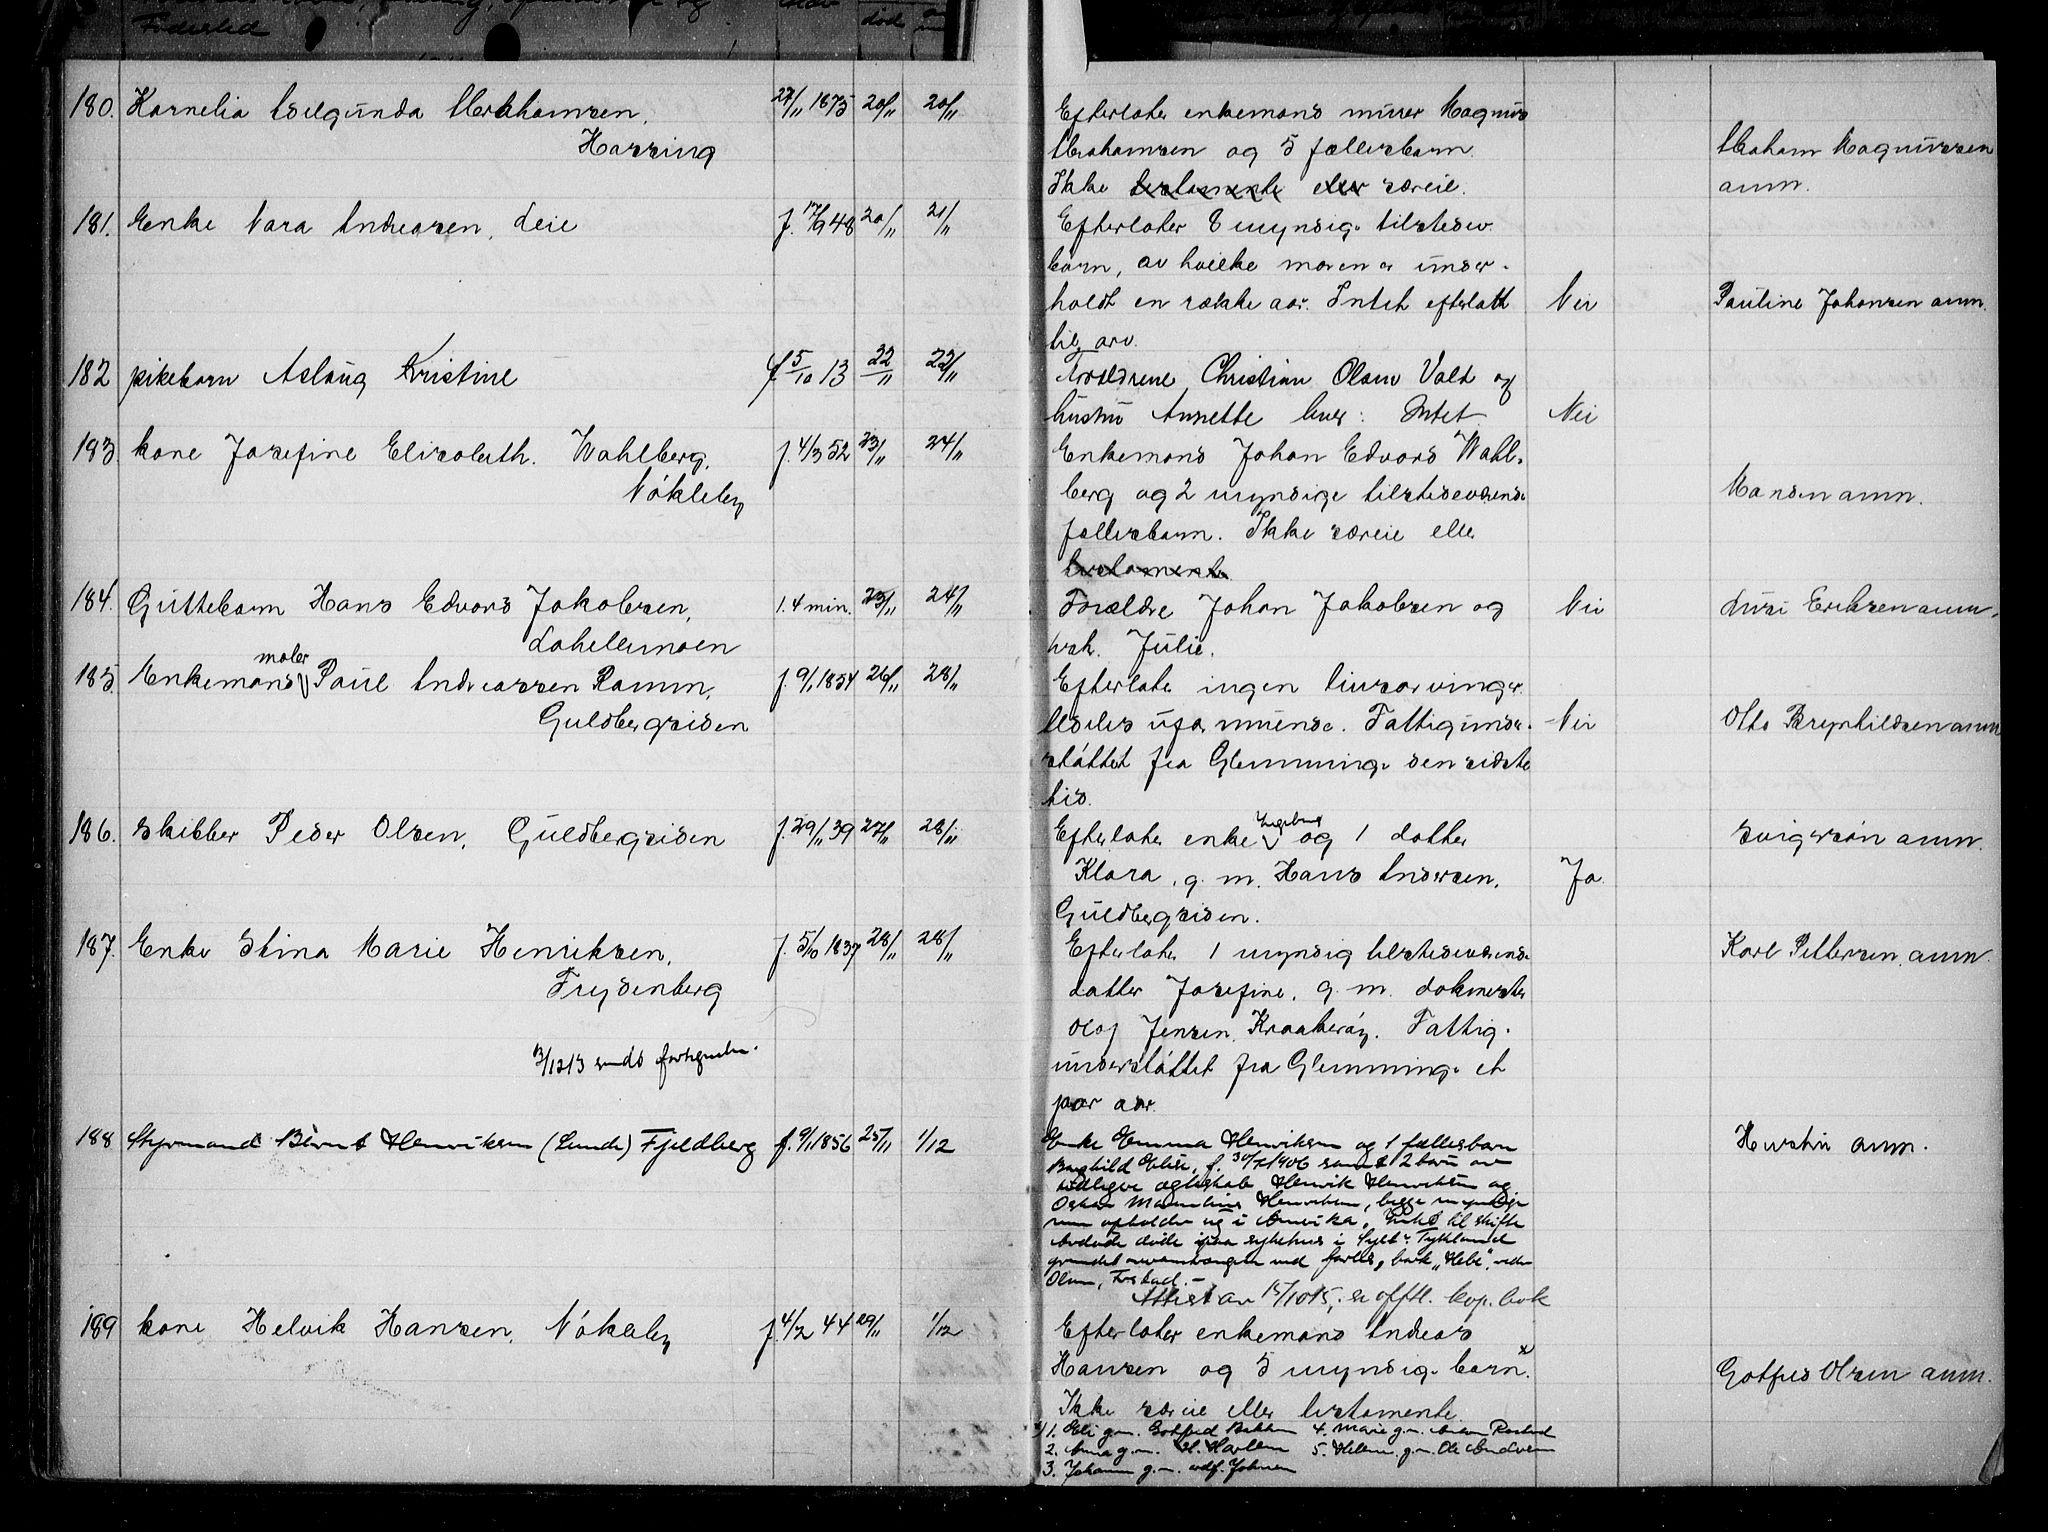 Fødested
død
180. Kornelia Adelgunda Abrahamsen, 27/11 1875 20/11 20/11
Harring
Efterlater enkemand murer Magnus
Abrahamsen og 5 fællesbarn
Ikke testamente eller særeie.
Abraham Magnussen
anm.
181. Enke Nara Andreasen, Leie f. 17/9 48 20/11 21/11
Efterlater 8 myndige tilstedev.
barn, av hvilke moren er under-
holdt en række aar. Intet efterlatt
til arv.
Nei
Pauline Johansen anm.
182 pikebarn Aslaug Kristine f 5/10 13 22/11 22/11
Forældrene Christian Olsen Vald og
hustru Annette lever: Intet
Nei
183. kone Josefine Elisabeth Wahlberg, f. 4/3 52 23/11 24/11
Nøkleby
Enkemand Johan Edvard Wahl-
berg og 2 myndige tilstedeværende
fællesbarn. Ikke særeie eller
testamente.
Manden anm.
184. Guttebarn Hans Edvard Jakobsen, l. 4 min. 23/11 24/11
Lahellemoen
Forældre Johan Jakobsen og
hsk. Julie.
Nei
Lusi Eriksen anm.
185. Enkemand maler Paul Andreassen Ramm, f. 9/11 1854 26/11 28/11
Guldbergsiden
Efterlater ingen livsarvinger.
Aldeles uformuende. Fattigunder-
støttet fra Glemminge den sidste
tid.
Nei
Otto Brynhildsen anm
186. Skibber Peder Olsen, Guldbergsiden f. 29/11 39 27/11 28/11
Efterlater enke Ingeborg og 1 datter
Klara, g. m. Hans Andersen,
Guldbergsiden.
Ja
Svigersøn anm.
187. Enke Stina Marie Henriksen, f. 5/10 1837 28/11 28/11
Frydenberg
13/12 13 sendt
Efterlater 1 myndig tilstedeværende
datter Josefine, g. m. dokmester
Olaf Jensen, Kraakerøy. Fattig-
understøttet fra Glemminge et
par aar.
Karl Pettersen anm.
188 Styrmand Bernt Henriksen (Lunde) Fjeldberg f. 9/1 1856 25/11 1/12
Enke Emma Henriksen og 1 fællesbarn
Borghild Elise, f. 30/7 1906 samt 2 barn av
tidligere egteskab Henrik Henriksen og
Oskar Maximilius Henriksen, begge myndige
som opholder sig i Amerika. Intet til skifte
Avdøde døde paa sykehus i Sylt: Tyskland
ved forlis, bark "Hebe", reder
Olsen, Frstad. -
Attest av 15/10 15, se offtl. kop. bok
Hustru anm.
189 kone Helvik Hansen, Nøkleby f. 4/2 44 29/11 1/12
Efterlater enkemand Andreas
Hansen og 5 myndige barn. x
Ikke særeie eller testamente.
x/1. Eli g.m. Gotfred Bakken 4. Marie g.m. Anton Rostad
2. Anna g.m. H. Karlsen 5. Helene g.m. Ole Andersen
3. Johanne g.m. Adf. Johnsen
Gotfred Olsen anm.